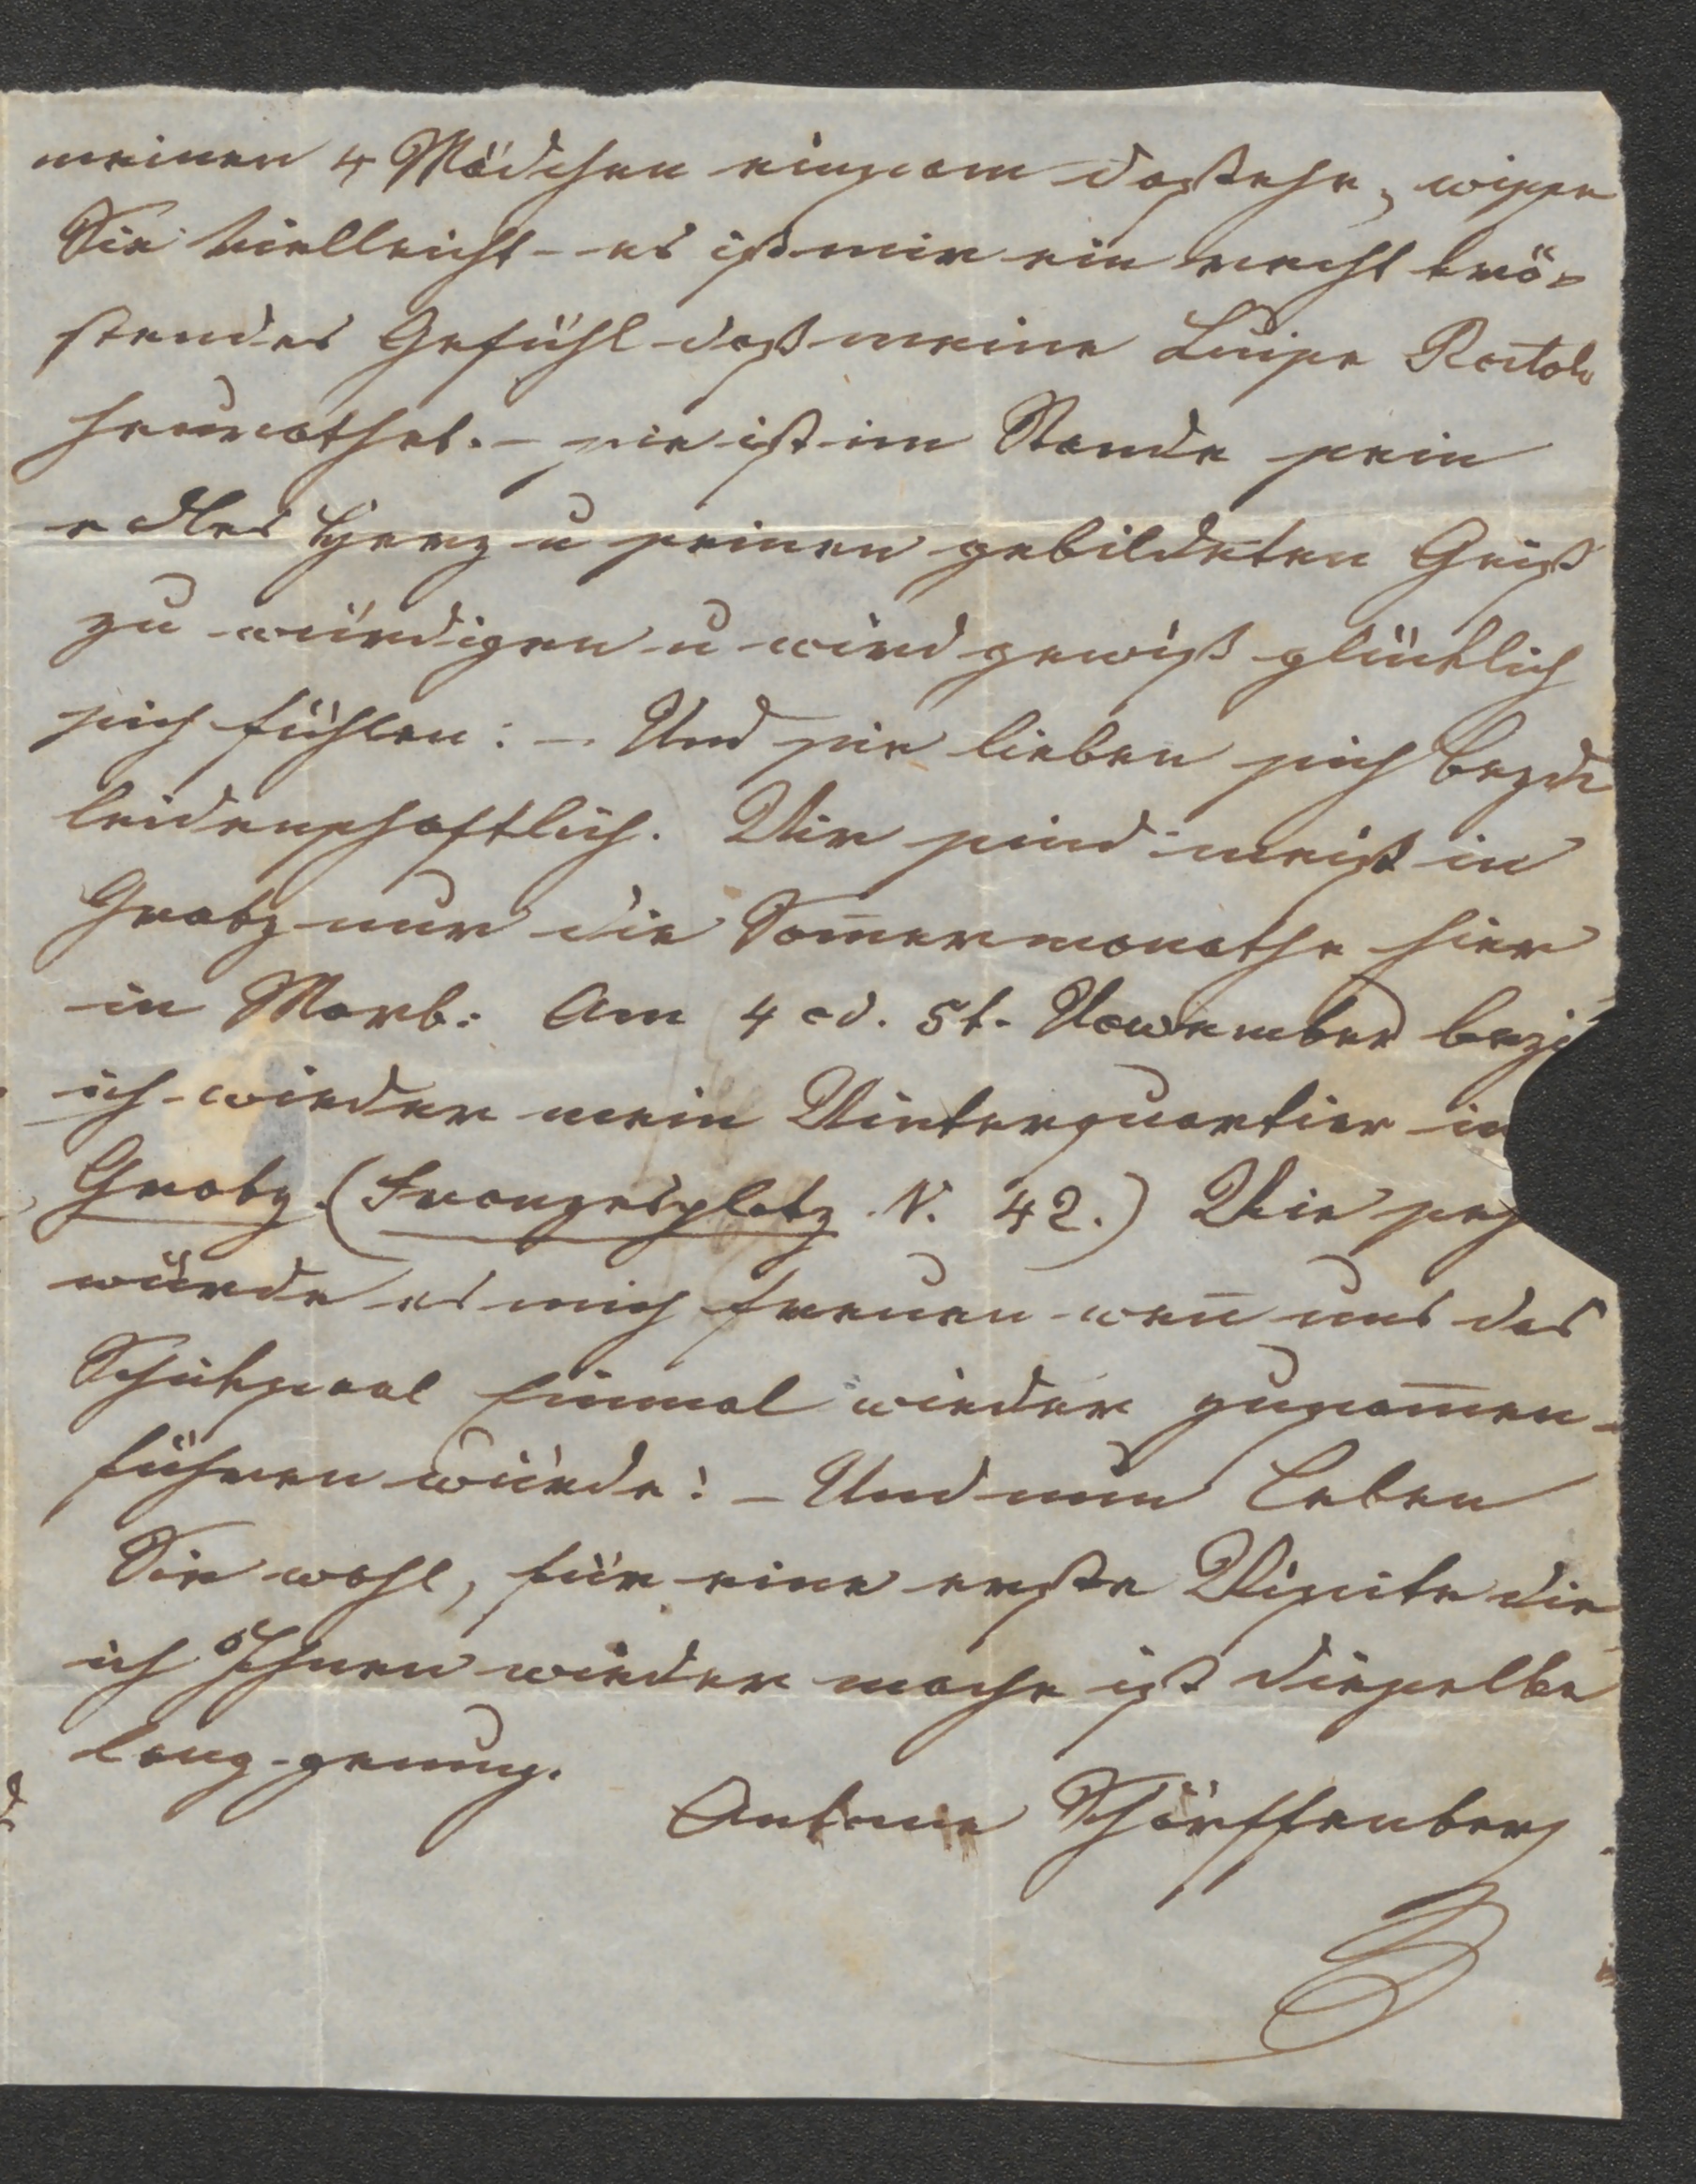 meinen 4 Mädchen einsam dastehe, wisse
Sie vielleicht – es ist mir ein recht trö-
stendes Gefühl daß meine Luise
heurathet. – sie ist im Stande sein
edles Herz u seinen gebildeten Geist
zu würdigen u wird gewiß glücklich
sich fühlen: – Und sie lieben sich beyde
leidenschaftlich. Wir sind meist in
Gratz nur die Som̄ermonathe hier
in Marb: Am 4 od. 5t. November bezi
ich wieder mein Winterquartier in
Gratz. (Franzensplatz N. 42.) Wie seh
würde es mich freuen wen̄ uns das
Schiksaal Einmal wieder zusam̄en-
führen würde! – Und nun Leben
Sie wohl, für eine erste Visite die
ich Ihnen wieder mache ist dieselbe
lang genug.
Antonie Schärffenberg